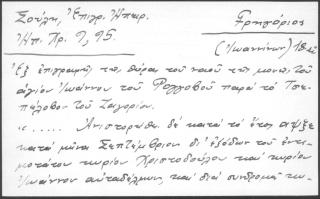 Σούλη, Ἐπιγρ. Ἠπειρ. Γρηγόριος
Ἠπ. Χρ. 9, 95. (Ἰωαννίνων) 18
Ἐξ ἐπιγραφῆς τῆς θύρας τοῦ ναοῦ τῆς μονῆς τοῦ
ἁγίου Ἰωάννου τοῦ Ρογκοβοῦ παρὰ τὸ Τσε-
πέλοβον τοῦ Ζαγορίου.
« ..... Ἀνιστορήθη δὲ κατὰ τὸ ἔτος
κατὰ μῆνα Σεπτέμβριον δι' ἐξόδων τοῦ ἐντι-
μοτάτου κυρίου Χριστοδούλου καὶ κυρίου
Ἰωάννου αὐταδέλφων, καὶ διὰ συνδρομῆς